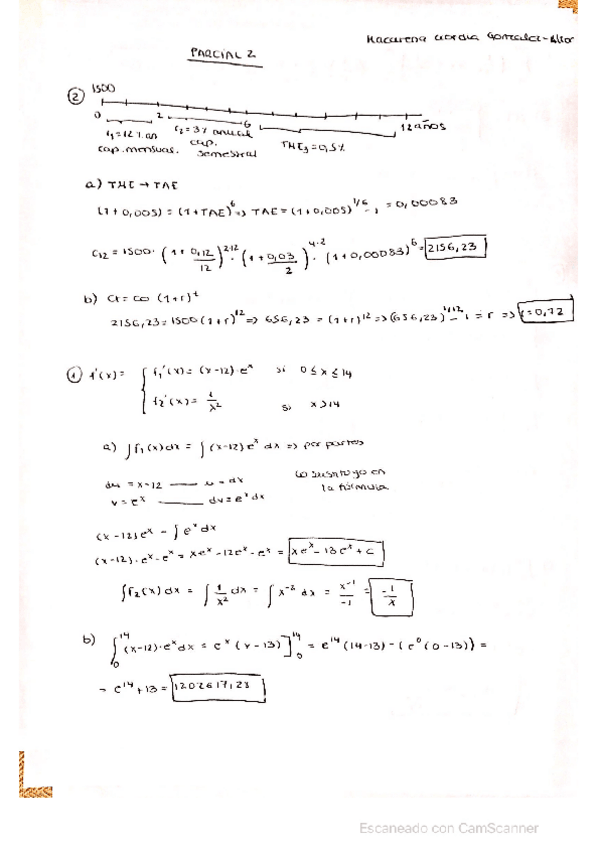 Macarena Gonzalez-Albor
PARCIAL 2
② 1500
0 2 6 12 años
r₁=12% an r₂=3% anual THE₃=0,5%
cap. mensual. cap. semestral
a) THE → TAE
(1+0,005) = (1+TAE)^6 => TAE = (1+0,005)^1/6 - 1 = 0,00083
C12 = 1500 · (1 + 0,12/12)^2·12 · (1 + 0,03/2)^4·2 · (1+0,00083)^6 = 2156,23
b) Ct = C0 (1+r)^t
2156,23 = 1500 (1+r)^12 => 656,23 = (1+r)^12 => (656,23)^1/12 - 1 = r => r = 0,72
① f'(x) = { f₁'(x) = (x-12)·e^x si 0 ≤ x ≤ 14
f₂'(x) = 1/x² si x>14
a) ∫f₁(x)dx = ∫(x-12)e^x dx => por partes
du = x-12 —— u = dx ↳ sustituyo en
v = e^x —— dv = e^x dx la fórmula
(x-12)e^x - ∫e^x dx
(x-12)·e^x - e^x = xe^x - 12e^x - e^x = xe^x - 13e^x + C
∫f₂(x)dx = ∫ 1/x² dx = ∫x^-2 dx = x^-1/-1 = -1/x
b) ∫₀^14 (x-12)·e^x dx = e^x (x-13)]₀^14 = e^14 (14-13) - (e^0 (0-13)) =
= e^14 + 13 = 1202617,28
Escaneado con CamScanner